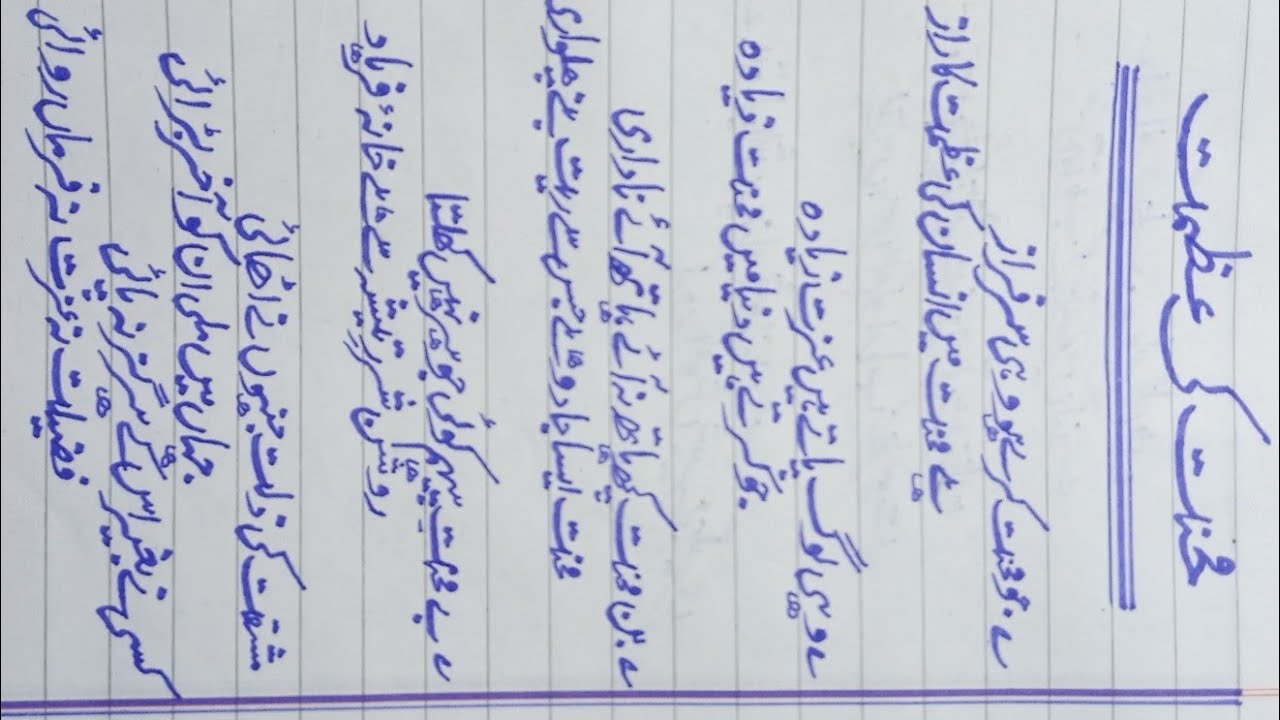 محنت کی عظمت
؎ جو محنت کرے ہو وہی سرفراز
ہے محنت میں انسان کی عظمت کا راز
؎ وہی لوگ پاتے ہیں عزت زیادہ
جو کرتے ہیں دنیا میں محنت زیادہ
؎ بن محنت کچھ ہاتھ نہ آئے ہاتھ آئے ناداری
محنت ایسا جادو ہے جس سے ریت بنے پھلواری
؎ بے محنت پیہم کوئی جوہر نہیں کھلتا
روشن شرر تیشہ سے ہے خانۂ فرہاد
مشقت کی ذلت جنہوں نے اٹھائی
جہاں میں ملی ان کو آخر بڑائی
کسی نے بغیر اس کے ہرگز نہ پائی
فضیلت نہ عزت نہ فرماں روائی